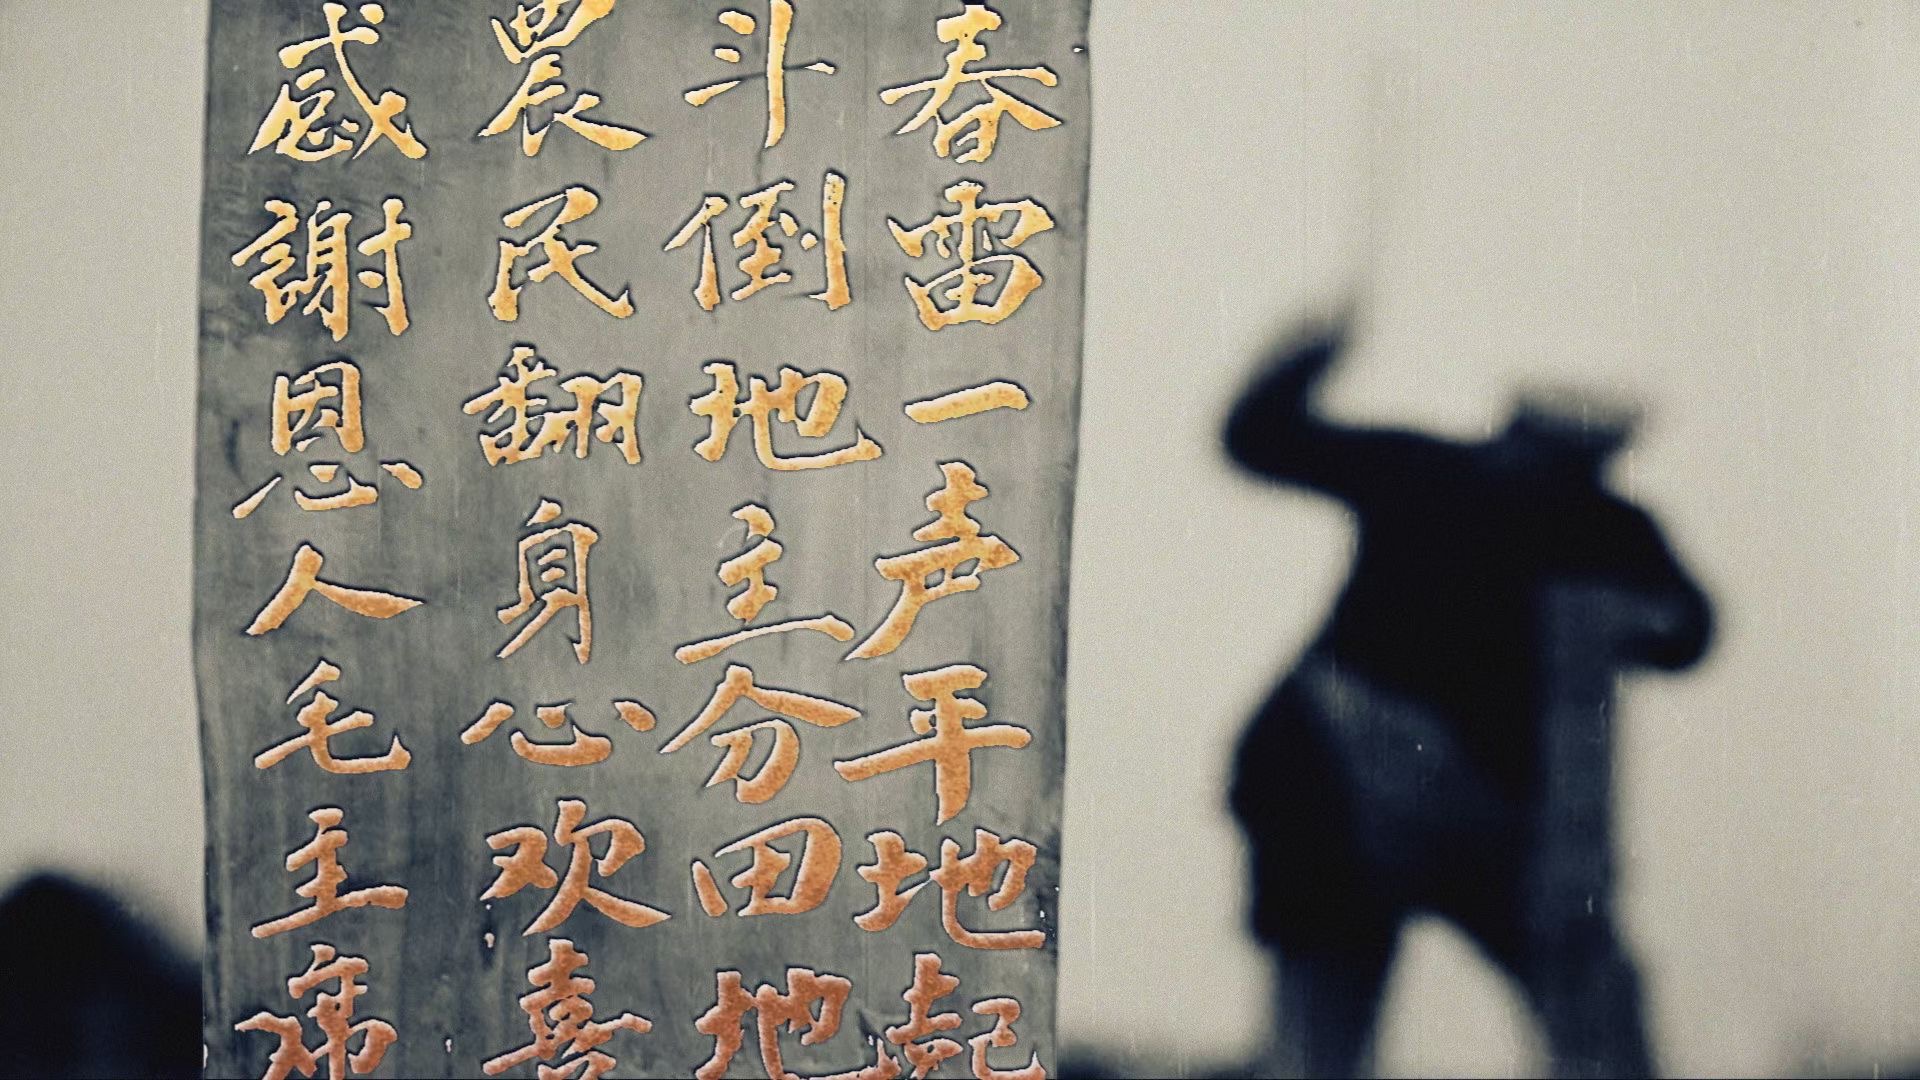 春雷一声平地起
斗倒地主分田地
農民翻身心欢喜
感謝恩人毛主席